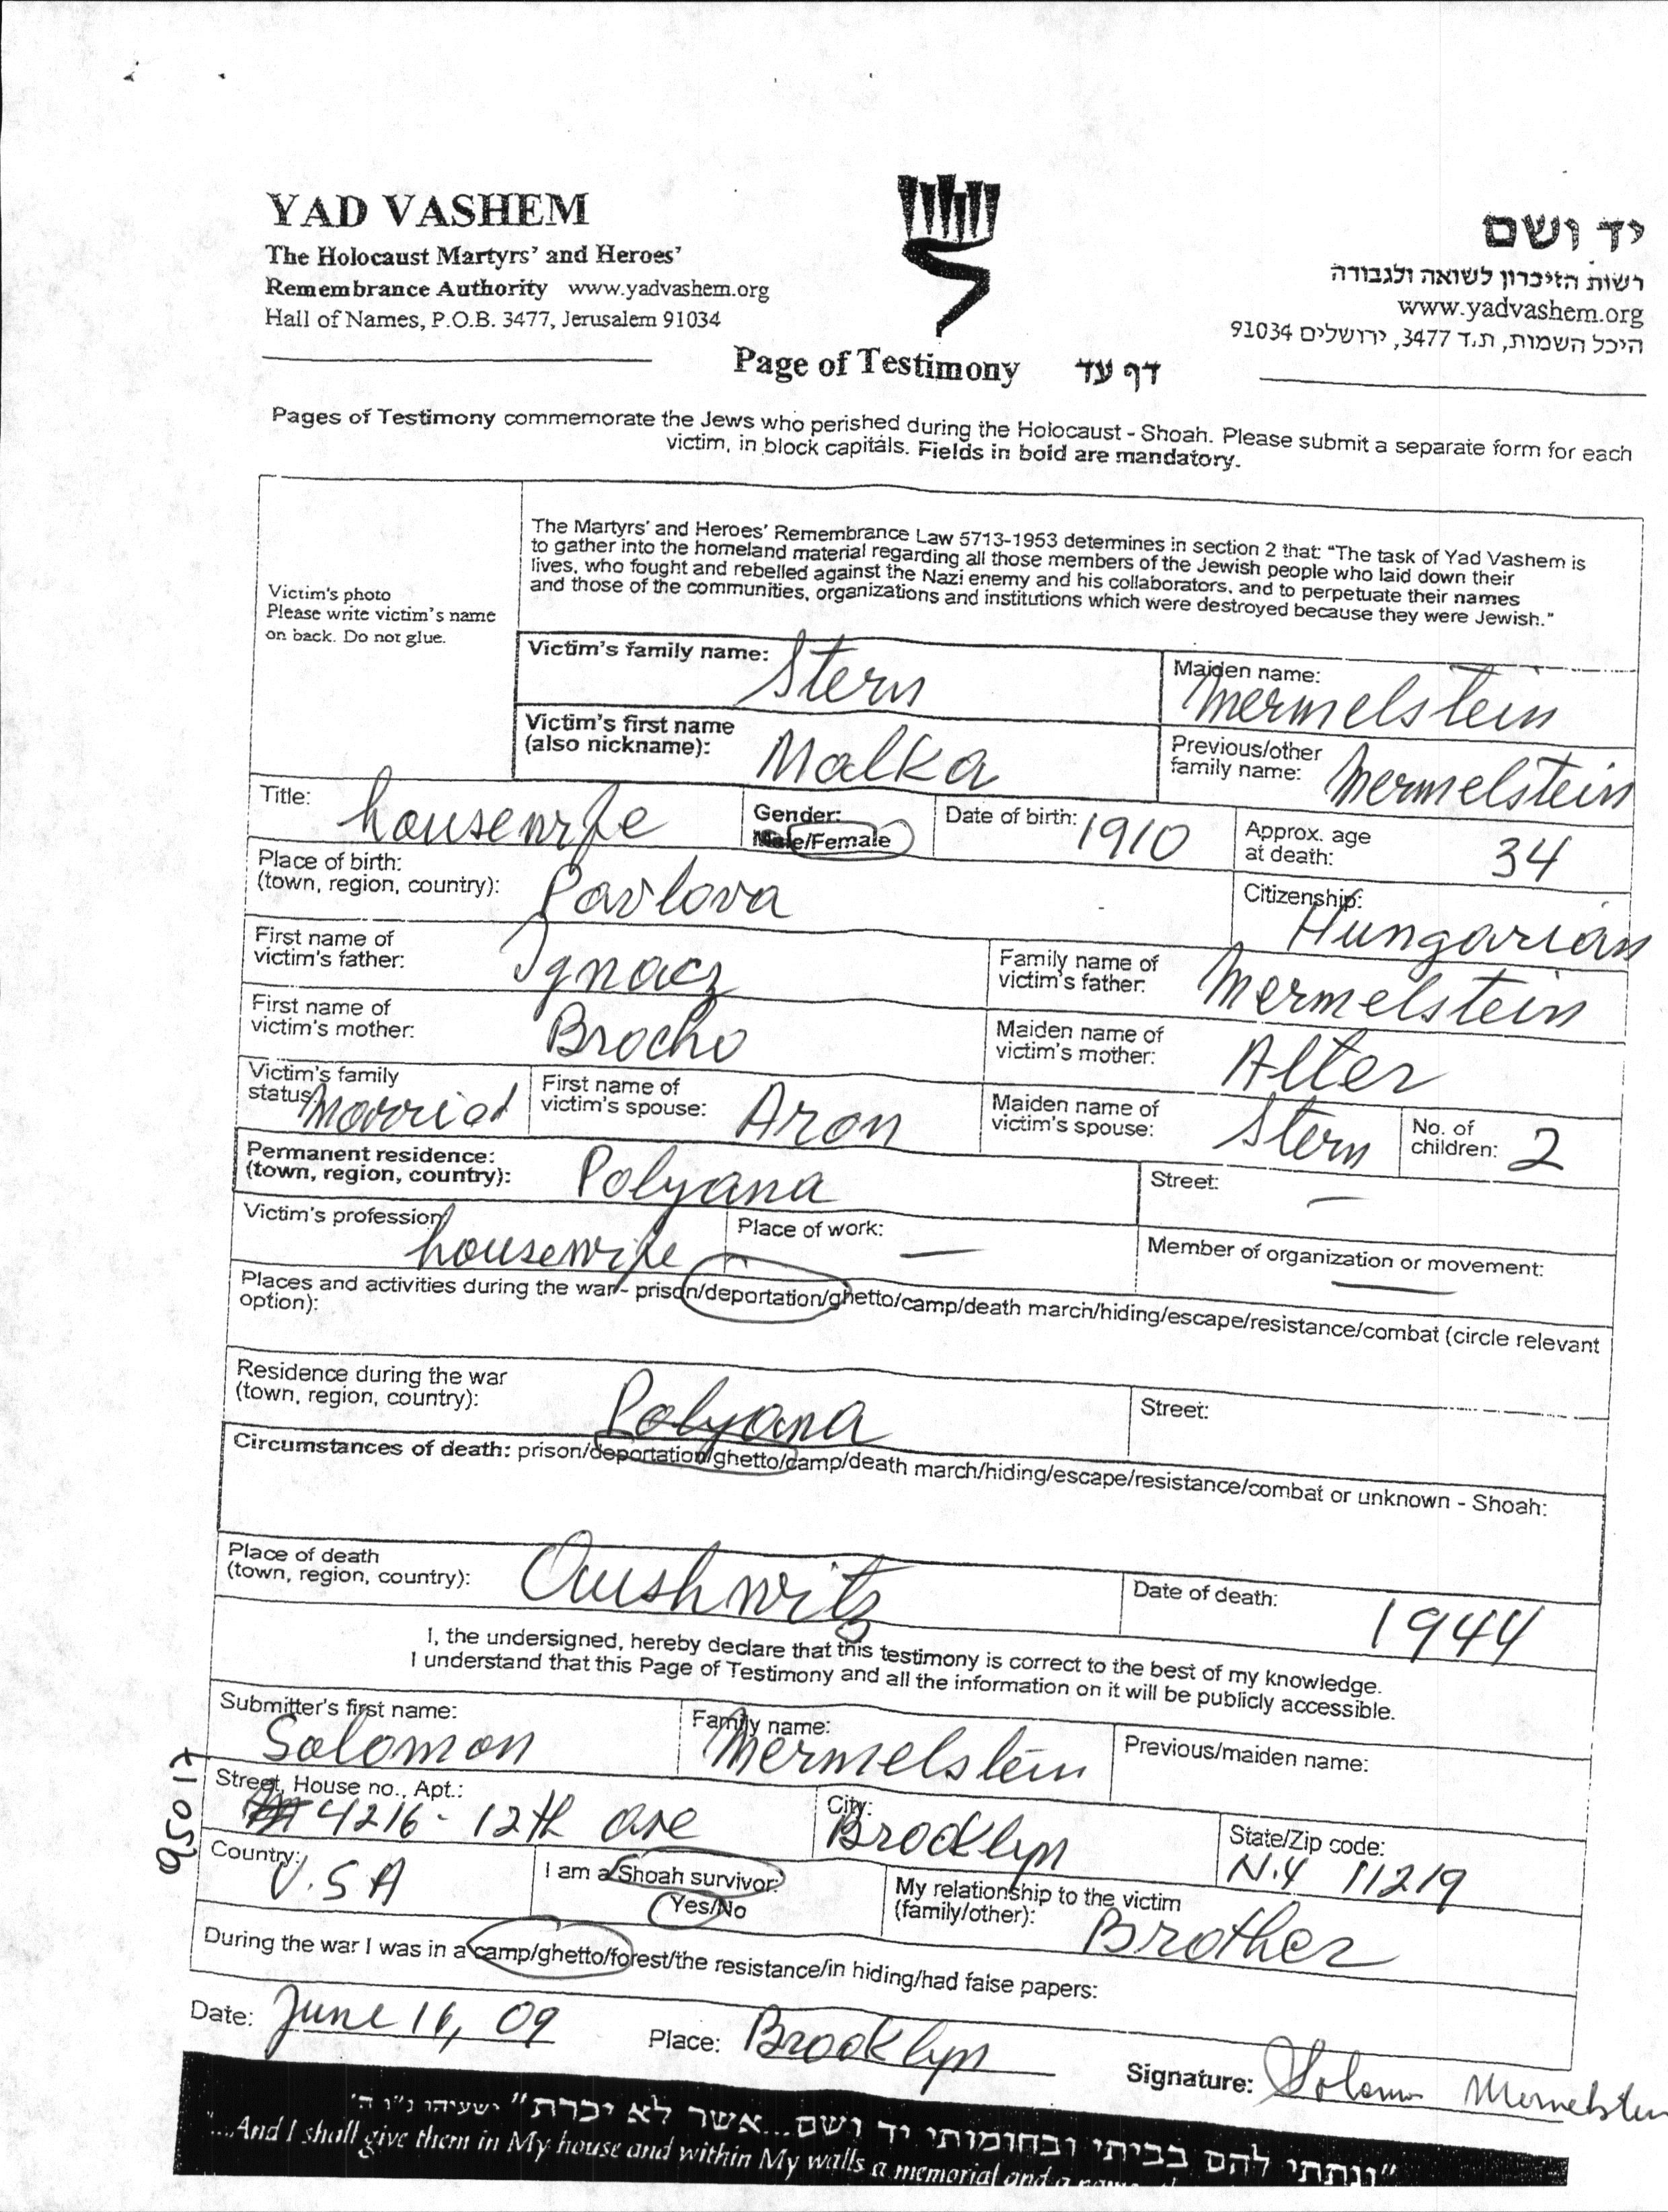 YAD VASHEM
The Holocaust Martyrs' and Heroes'
Remembrance Authority www.yadvashem.org
Hall of Names, P.O.B. 3477, Jerusalem 91034
יד ושם
רשות הזיכרון לשואה ולגבורה
www.yadvashem.org
היכל השמות, ת.ד 3477, ירושלים 91034
Page of Testimony דף עד
Pages of Testimony commemorate the Jews who perished during the Holocaust - Shoah. Please submit a separate form for each
victim, in block capitals. Fields in bold are mandatory.
Victim's photo
Please write victim's name
on back. Do not glue.
The Martyrs' and Heroes' Remembrance Law 5713-1953 determines in section 2 that: "The task of Yad Vashem is
to gather into the homeland material regarding all those members of the Jewish people who laid down their
lives, who fought and rebelled against the Nazi enemy and his collaborators, and to perpetuate their names
and those of the communities, organizations and institutions which were destroyed because they were Jewish."
Victim's family name: Stern
Maiden name: Mermelstein
Victim's first name
(also nickname): Malka
Previous/other
family name: Mermelstein
Title: housewife
Gender:
Male/Female
Date of birth: 1910
Approx. age
at death: 34
Place of birth:
(town, region, country): Pavlova
Citizenship: Hungarian
First name of
victim's father: Ignacz
Family name of
victim's father: Mermelstein
First name of
victim's mother: Brocho
Maiden name of
victim's mother: Alter
Victim's family
status: Married
First name of
victim's spouse: Aron
Maiden name of
victim's spouse: Stern
No. of
children: 2
Permanent residence:
(town, region, country): Polyana
Street: —
Victim's profession: housewife
Place of work: —
Member of organization or movement: —
Places and activities during the war - prison/deportation/ghetto/camp/death march/hiding/escape/resistance/combat (circle relevant
option):
Residence during the war
(town, region, country): Polyana
Street:
Circumstances of death: prison/deportation/ghetto/camp/death march/hiding/escape/resistance/combat or unknown - Shoah:
Place of death
(town, region, country): Aushwitz
Date of death: 1944
I, the undersigned, hereby declare that this testimony is correct to the best of my knowledge.
I understand that this Page of Testimony and all the information on it will be publicly accessible.
Submitter's first name: Solomon
Family name: Mermelstein
Previous/maiden name:
Street, House no., Apt.: 4216 - 12th ave
City: Brooklyn
State/Zip code: N.Y 11219
Country: U.S A
I am a Shoah survivor:
Yes/No
My relationship to the victim
(family/other): Brother
During the war I was in a camp/ghetto/forest/the resistance/in hiding/had false papers:
Date: June 16, 09
Place: Brooklyn
Signature: Solomon Mermelstein
"ונתתי להם בביתי ובחומותי יד ושם...אשר לא יכרת" ישעיהו נ"ו ה'
"...And I shall give them in My house and within My walls a memorial and a name